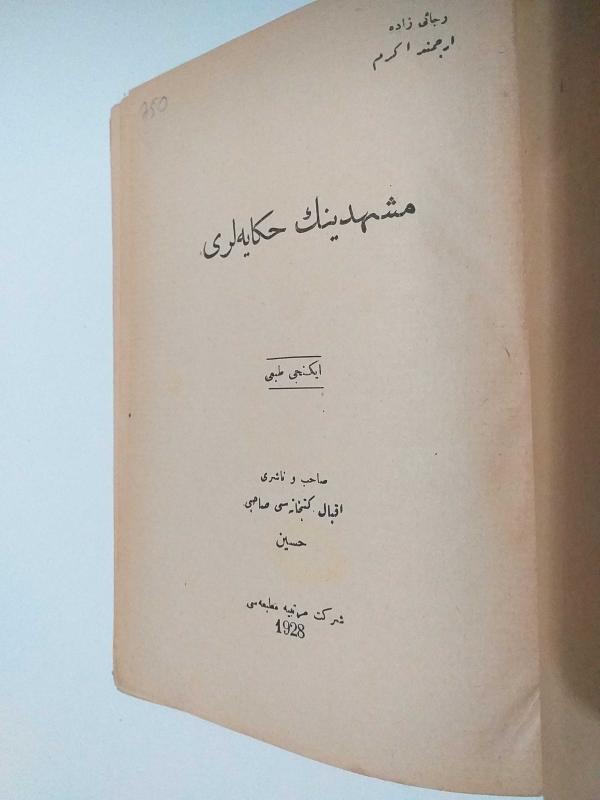 رجائی زاده
ارجمند اكرم
750
مشهدینك حكایه‌لری
ایكنجی طبعی
صاحب و ناشری
اقبال كتبخانه‌سی صاحبی
حسین
شركت مرتبیه مطبعه‌سی
1928